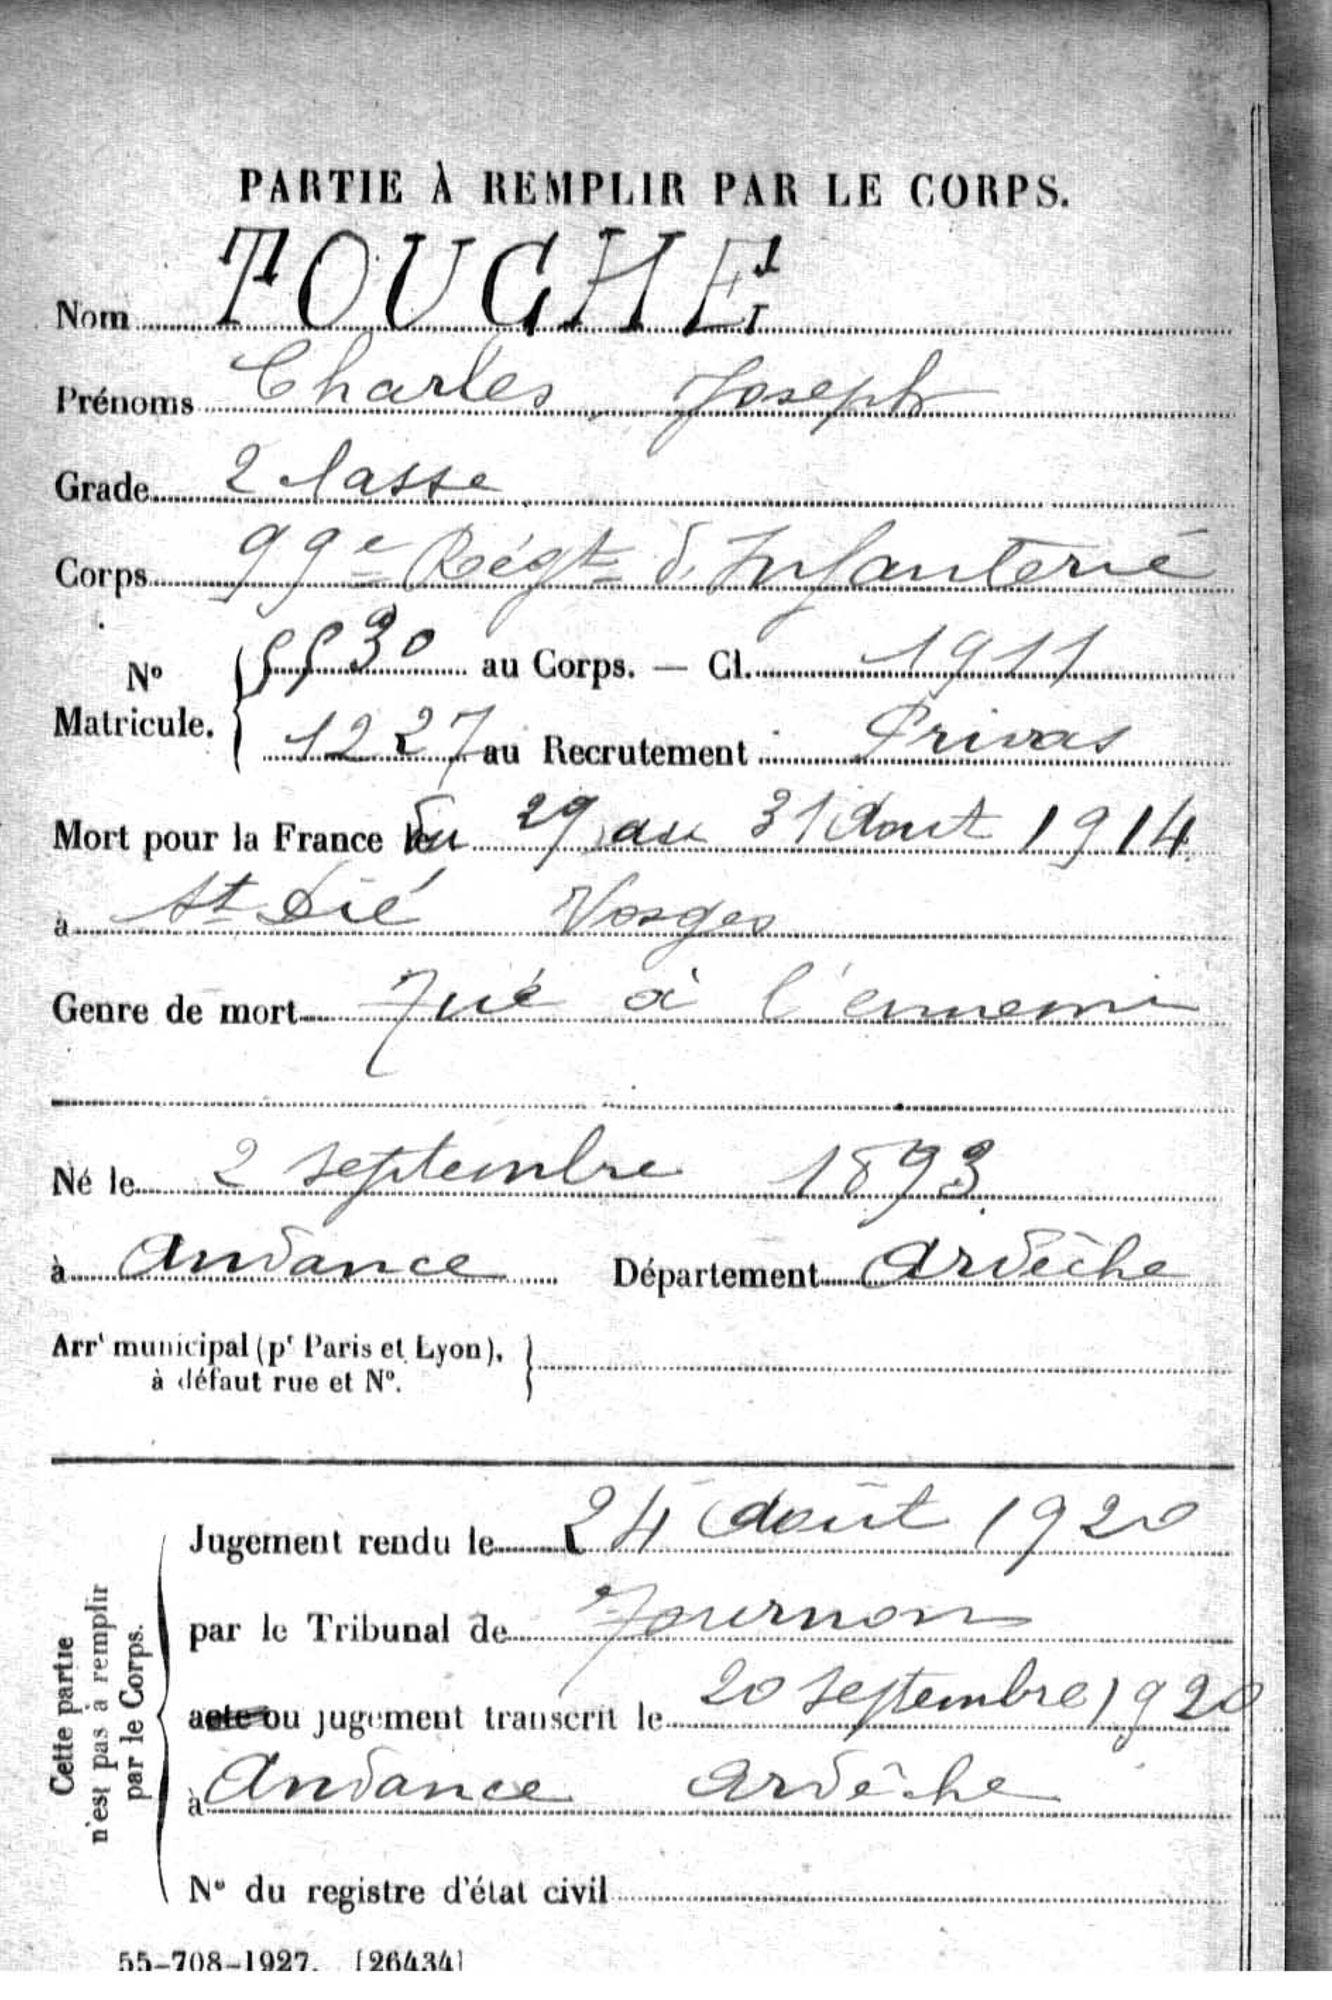 PARTIE À REMPLIR PAR LE CORPS.
Nom TOUCHE
Prénoms Charles Joseph
Grade 2 classe
Corps 99e Régt d'Infanterie
No Matricule. { 5530 au Corps. — Cl. 1911
1227 au Recrutement Privas
Mort pour la France du 29 au 31 Août 1914
à St Dié Vosges
Genre de mort Tué à l'ennemi
Né le 2 septembre 1893
à Andance Département Ardèche
Arrt municipal (pr Paris et Lyon), }
à défaut rue et No.
Cette partie
n'est pas à remplir
par le Corps.
Jugement rendu le 24 Août 1920
par le Tribunal de Tournon
acte ou jugement transcrit le 20 septembre 1920
à Andance Ardèche
No du registre d'état civil
55-708-1927. [26434]